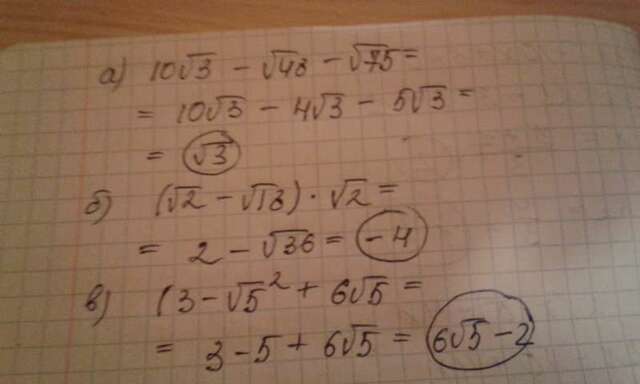 а) 10√3 - √48 - √75 =
= 10√3 - 4√3 - 5√3 =
= √3
б) (√2 - √18) · √2 =
= 2 - √36 = -4
в) (3 - √5² + 6√5 =
= 3 - 5 + 6√5 = 6√5 - 2